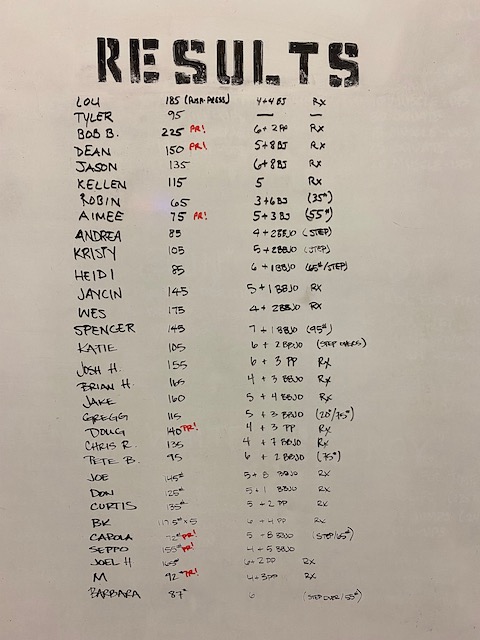 RESULTS
LOU 185 (PUSH-PRESS) 4+4 BJ Rx
TYLER 95 — —
BOB B. 225 PR! 6+2 PP Rx
DEAN 150 PR! 5+8BJ Rx
JASON 135 6+8BJ Rx
KELLEN 115 5 Rx
ROBIN 65 3+6BJ (35#)
AIMEE 75 PR! 5+3 BJ (55#)
ANDREA 85 4+2BBJO (STEP)
KRISTY 105 5+2BBJO (STEP)
HEIDI 85 6+1BBJO (65#/STEP)
JAYCIN 145 5+1 BBJO Rx
WES 175 4+2BBJO Rx
SPENCER 145 7+1 BBJO (95#)
KATIE 105 6+2 BBJO (STEP OVERS)
JOSH H. 155 6+3 PP Rx
BRIAN H. 165 4+3 BBJO Rx
JAKE 160 5+4 BBJO Rx
GREGG 115 5+3 BBJO (20"/75#)
DOUG 140 PR! 4+3 PP Rx
CHRIS R. 135 4+7 BBJO Rx
PETE B. 95 6+2 BBJO (75#)
JOE 145# 5+8 BBJO Rx
DON 125# 5+1 BBJO Rx
CURTIS 135# 5+2 PP Rx
BK 117.5#x5 6+4 PP Rx
CAROLA 72# PR! 5-8 BBJO (STEP/65#)
SEPPO 155# PR! 4+5 BBJO
JOEL H 165# 6+2 PP Rx
M 92# PR! 4+3PP Rx
BARBARA 87# 6 (STEP OVER/55#)